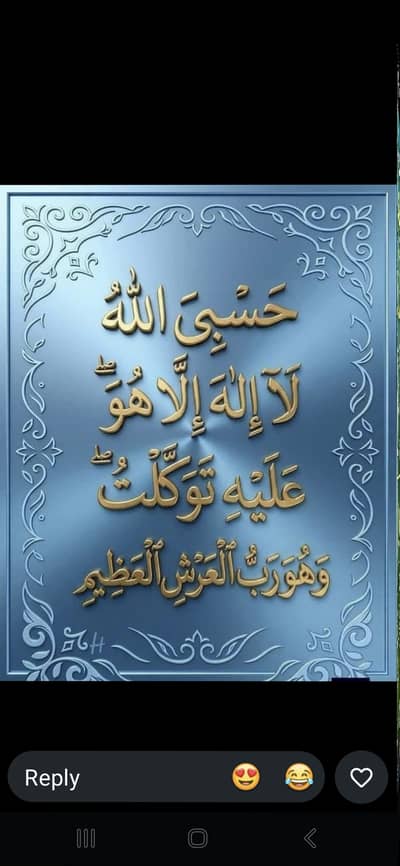 حَسْبِىَ اللَّهُ
لَآ إِلَٰهَ إِلَّا هُوَ ۖ
عَلَيْهِ تَوَكَّلْتُ ۖ
وَهُوَ رَبُّ ٱلْعَرْشِ ٱلْعَظِيمِ
H
Reply